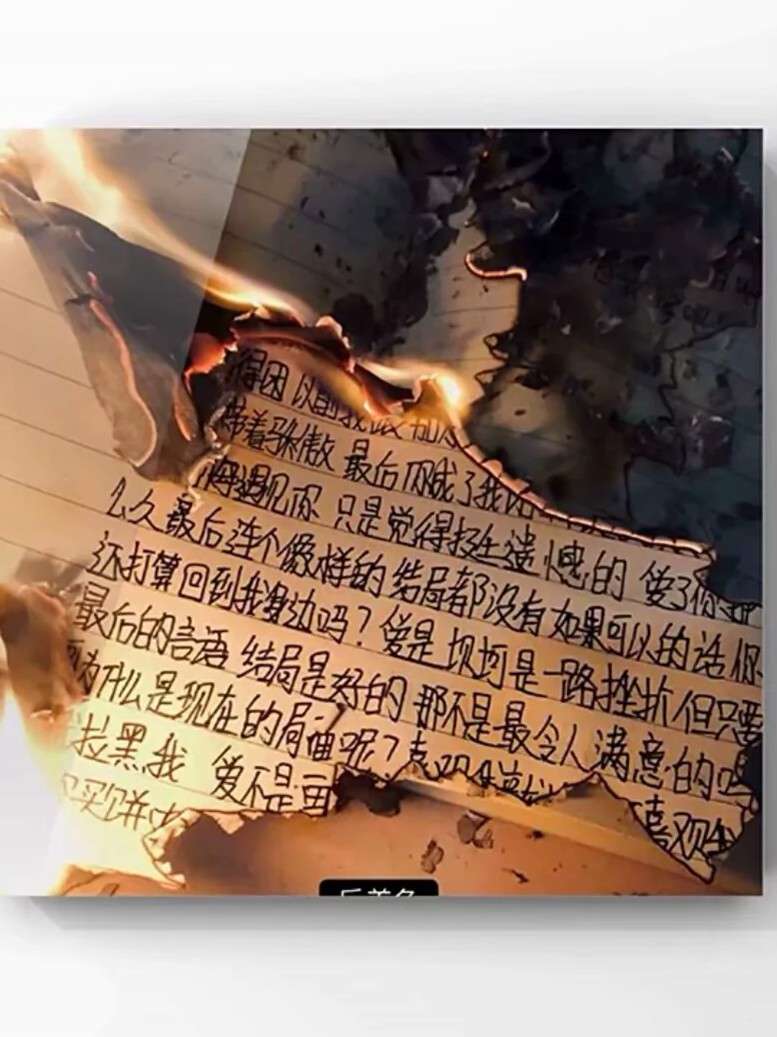 得困 以前我
带着骄傲 最后你成了我
再遇见你 只是觉得挺遗憾的 爱了你那
么久最后连个像样的结局都没有如果可以的话你
还打算回到我身边吗？爱是坎坷是一路挫折但只要
最后的言语 结局是好的 那不是最令人满意的吗
为什么是现在的局面呢？喜欢
拉黑我 爱不是画 喜欢
买饼